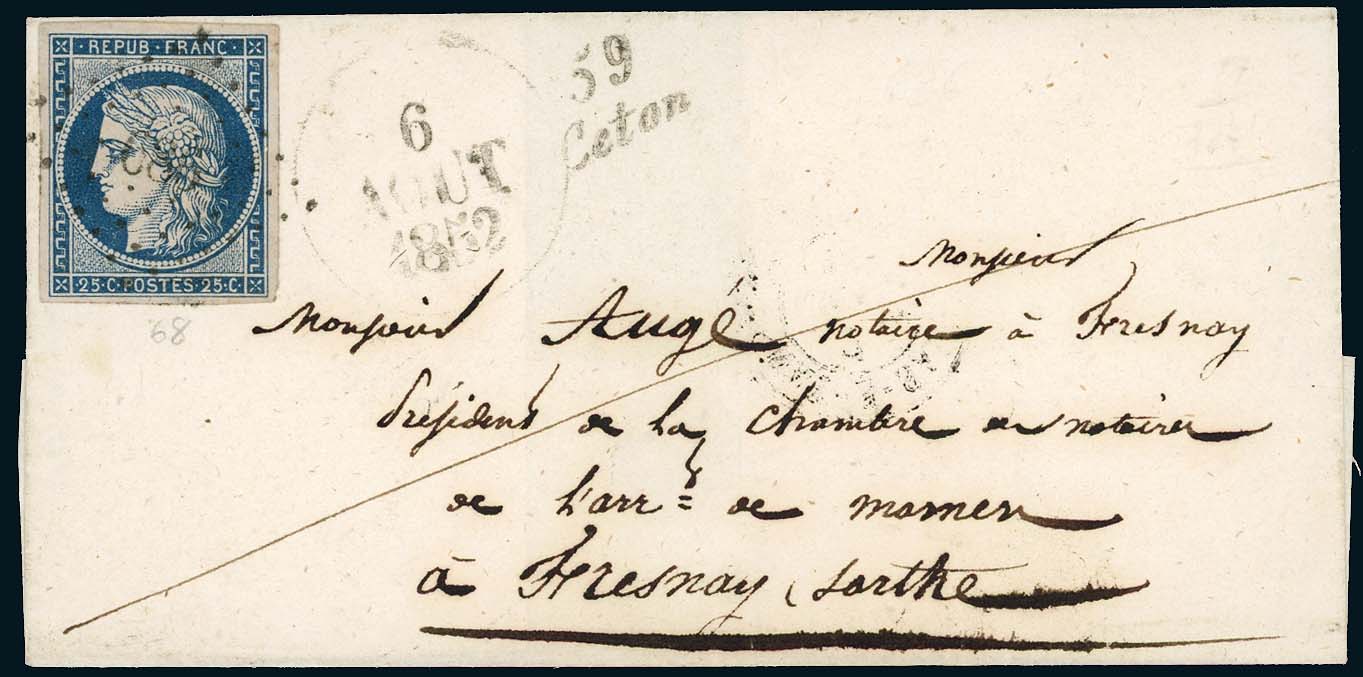 REPUB·FRANC·
25·C·POSTES·25·C·
6
AOUT
1852
59
Ceton
68
Monsieur
Monsieur Augé notaire à Fresnay
Président de la Chambre des notaires
de l'arr.t de mamers
à Fresnay, Sarthe